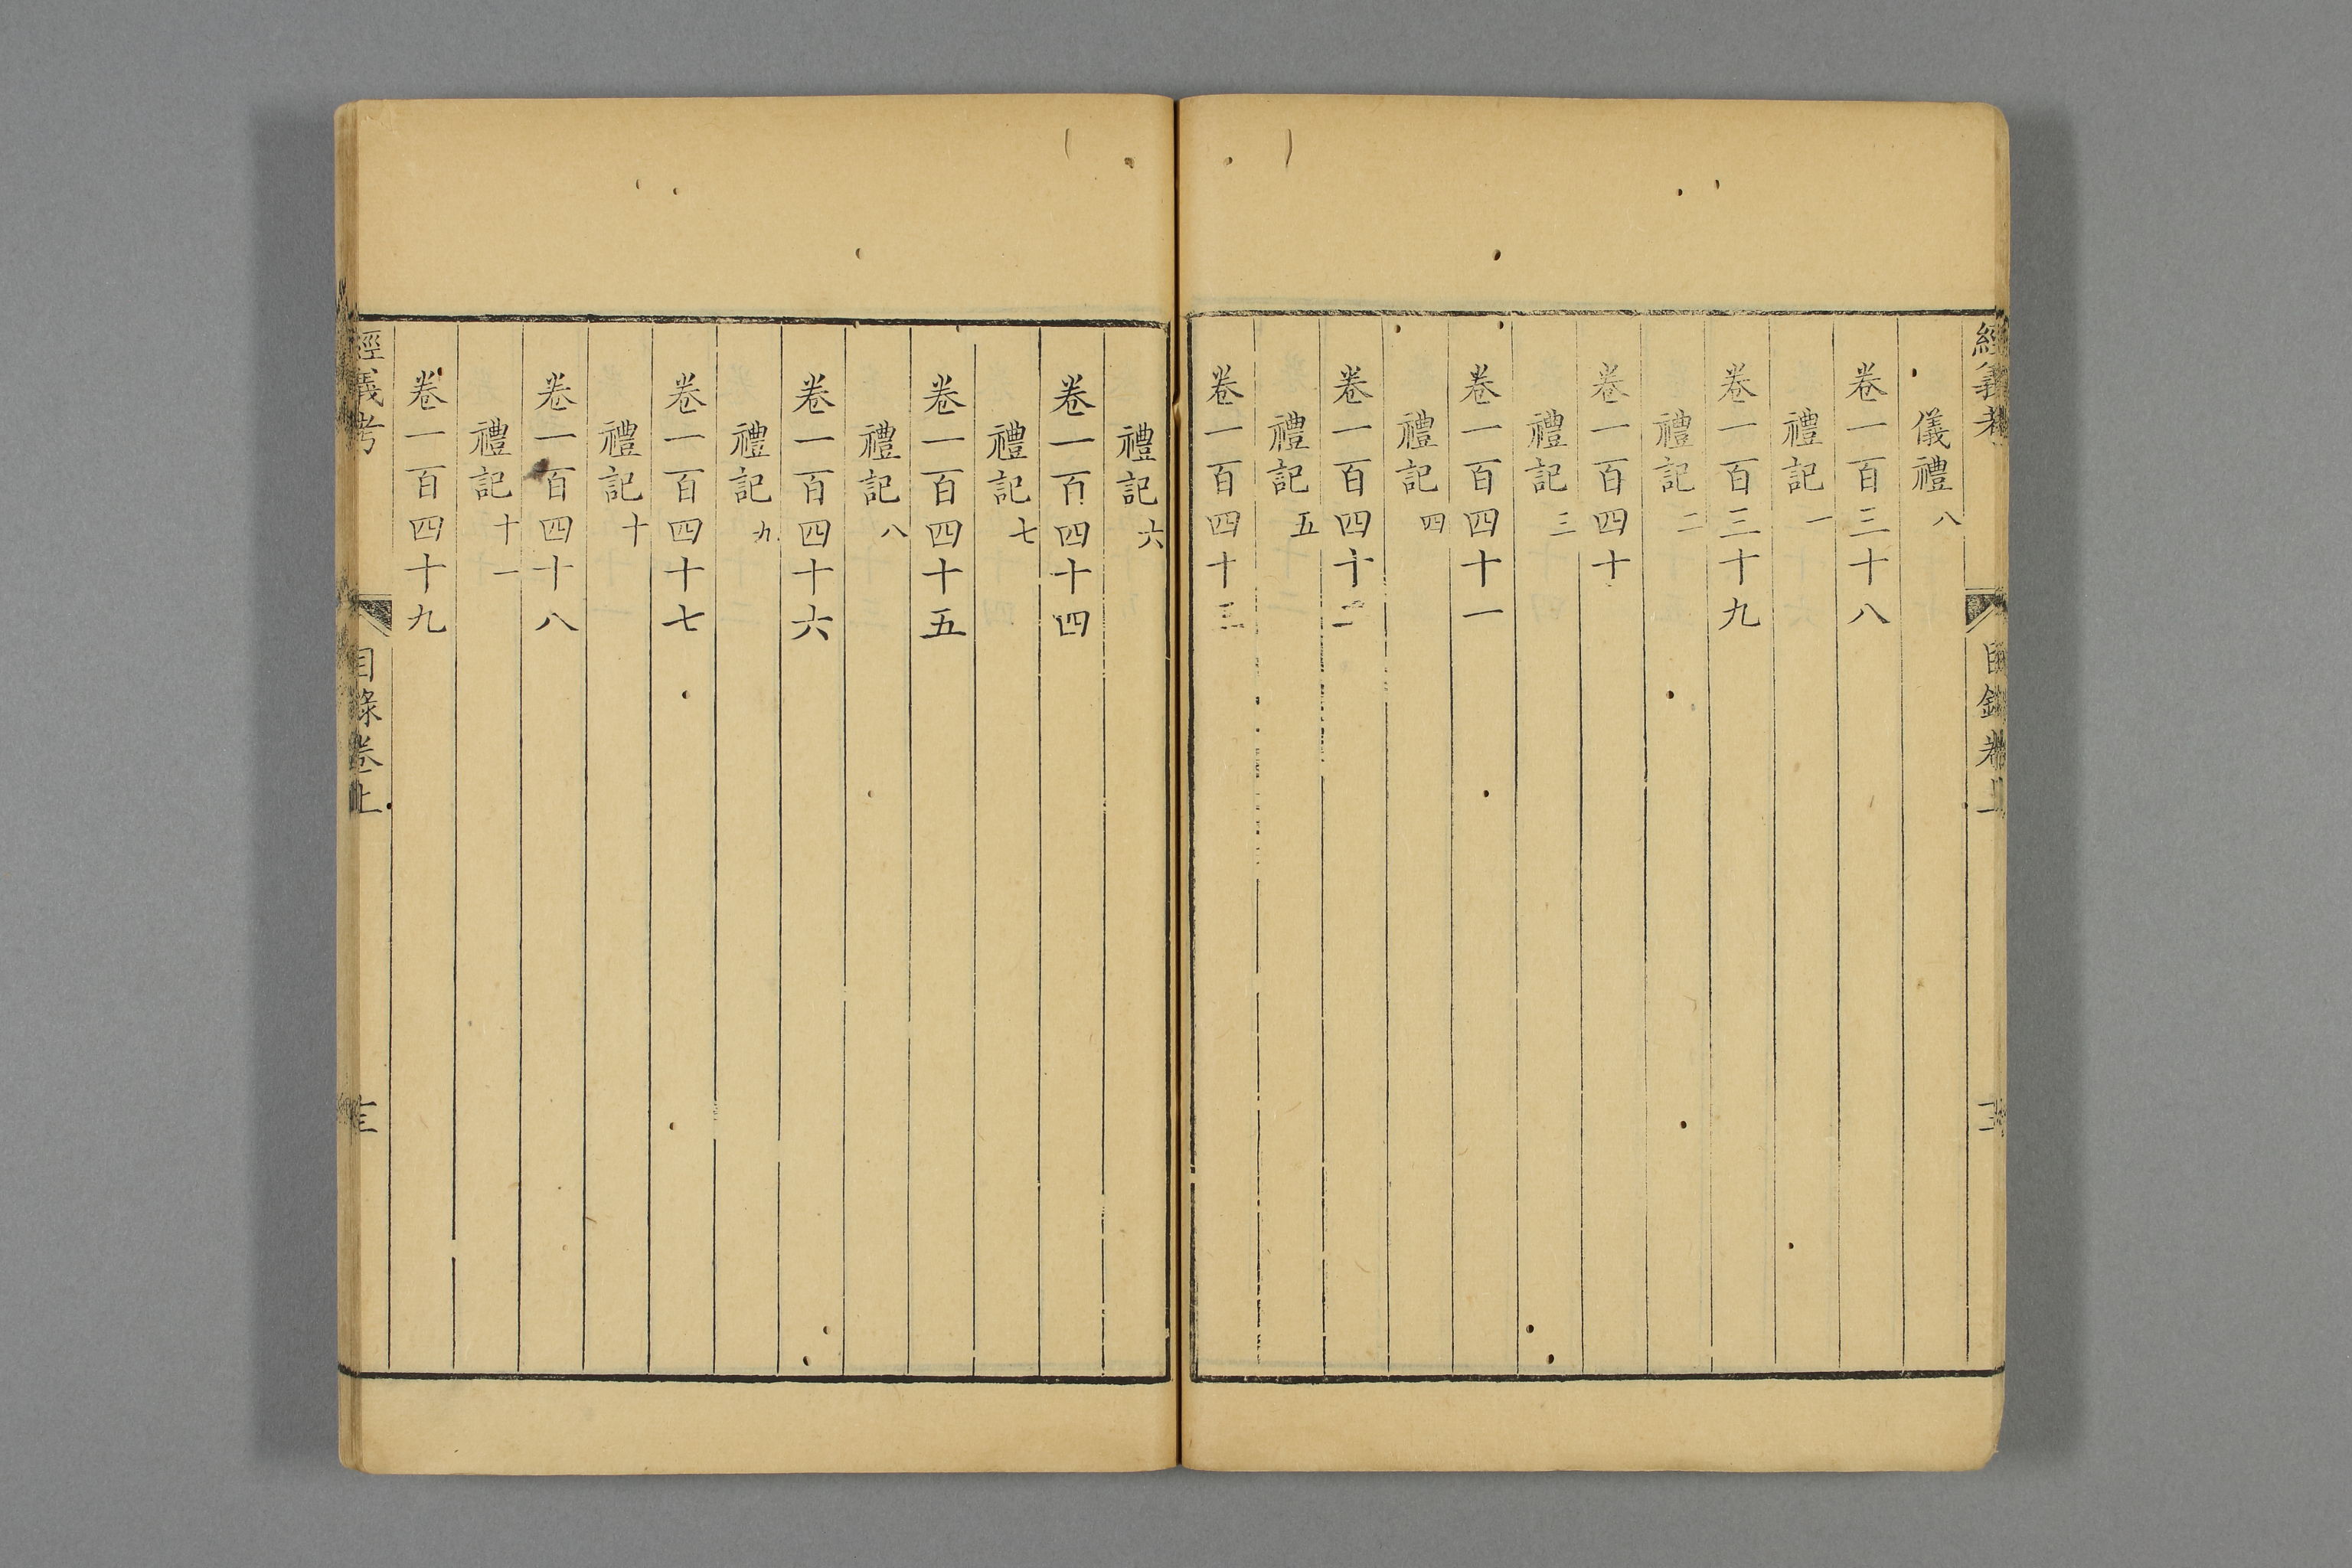 儀禮八
卷一百三十八
禮記一
卷一百三十九
禮記二
卷一百四十
禮記三
卷一百四十一
禮記四
卷一百四十二
禮記五
卷一百四十三
禮記六
卷一百四十四
禮記七
卷一百四十五
禮記八
卷一百四十六
禮記九
卷一百四十七
禮記十
卷一百四十八
禮記十一
卷一百四十九
經義考
目錄卷上